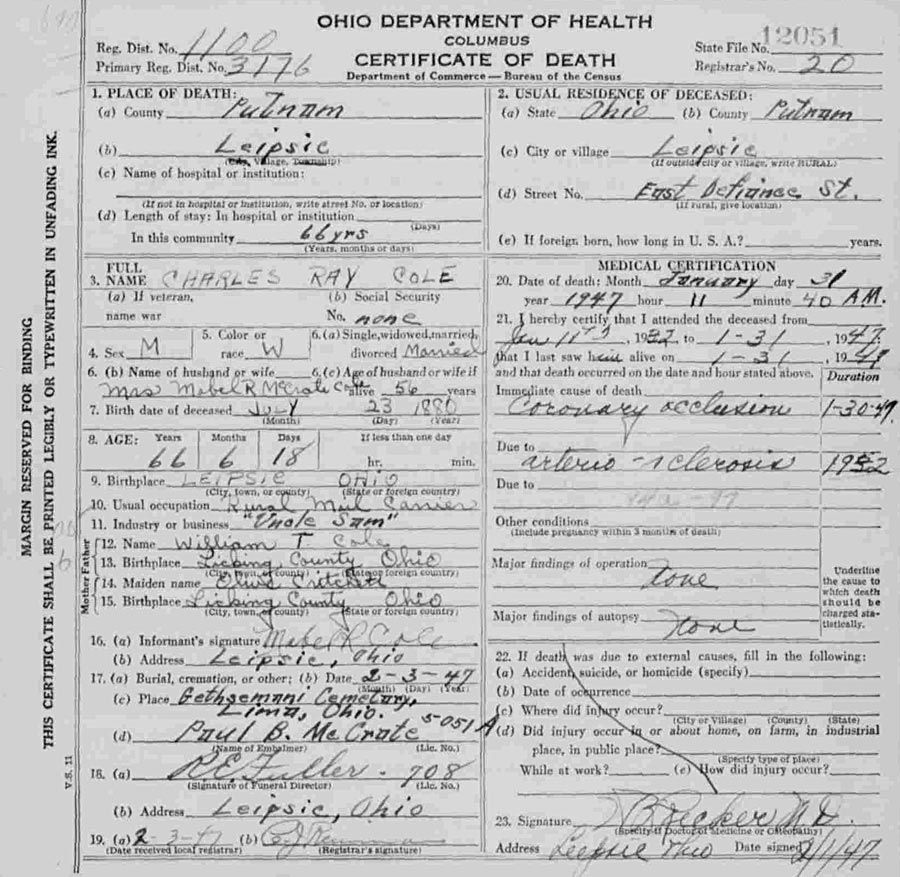 OHIO DEPARTMENT OF HEALTH
COLUMBUS
CERTIFICATE OF DEATH
Department of Commerce — Bureau of the Census
Reg. Dist. No. 1100
Primary Reg. Dist. No. 3176
State File No. 12051
Registrar's No. 20
MARGIN RESERVED FOR BINDING
THIS CERTIFICATE SHALL BE PRINTED LEGIBLY OR TYPEWRITTEN IN UNFADING INK.
V.S. 11
1. PLACE OF DEATH:
(a) County Putnam
(b) Leipsic
(City, Village, Township)
(c) Name of hospital or institution:
(If not in hospital or institution, write street No. or location)
(d) Length of stay: In hospital or institution
(Days)
In this community 66 yrs
(Years, months or days)
2. USUAL RESIDENCE OF DECEASED:
(a) State Ohio (b) County Putnam
(c) City or village Leipsic
(If outside city or village, write RURAL)
(d) Street No. East Defiance St.
(If rural, give location)
(e) If foreign born, how long in U. S. A.? years.
3. FULL NAME CHARLES RAY COLE
(a) If veteran, name war
(b) Social Security No. none
4. Sex M
5. Color or race W
6. (a) Single, widowed, married, divorced Married
6. (b) Name of husband or wife
Mrs Mabel R McCrate Cole
6. (c) Age of husband or wife if alive 56 years
7. Birth date of deceased July 23 1880
(Month) (Day) (Year)
8. AGE: Years Months Days If less than one day
66 6 18 hr. min.
9. Birthplace LEIPSIC OHIO
(City, town, or county) (State or foreign country)
10. Usual occupation Rural Mail Carrier
11. Industry or business "Uncle Sam"
Father
12. Name William T Cole
13. Birthplace Licking County Ohio
(City, town, or county) (State or foreign country)
Mother
14. Maiden name Olive
15. Birthplace Licking County Ohio
(City, town, or county) (State or foreign country)
16. (a) Informant's signature Mabel R Cole
(b) Address Leipsic, Ohio
17. (a) Burial, cremation, or other; (b) Date 2-3-47
(Month) (Day) (Year)
(c) Place Gethsemani Cemetary,
Lima, Ohio.
(d) Paul B. McCrate 5051 A
(Name of Embalmer) (Lic. No.)
18. (a) R.E. Fuller - 708
(Signature of Funeral Director) (Lic. No.)
(b) Address Leipsic, Ohio
19. (a) 2-3-47 (b)
(Date received local registrar) (Registrar's signature)
MEDICAL CERTIFICATION
20. Date of death: Month January day 31
year 1947 hour 11 minute 40 A.M.
21. I hereby certify that I attended the deceased from
Jan 11th, 1932, to 1-31, 1947.
that I last saw him alive on 1-31, 1947
and that death occurred on the date and hour stated above. Duration
Immediate cause of death
Coronary occlusion 1-30-47.
Due to
arterio-sclerosis 1932
Due to
Other conditions
(Include pregnancy within 3 months of death)
Major findings of operation
None
Major findings of autopsy
None
Underline the cause to which death should be charged statistically.
22. If death was due to external causes, fill in the following:
(a) Accident, suicide, or homicide (specify)
(b) Date of occurrence
(c) Where did injury occur?
(City or Village) (County) (State)
(d) Did injury occur in or about home, on farm, in industrial
place, in public place?
(Specify type of place)
While at work? (e) How did injury occur?
23. Signature Recker M.D.
(Specify if Doctor of Medicine or Osteopathy)
Address Leipsic Ohio Date signed 2/1/47.